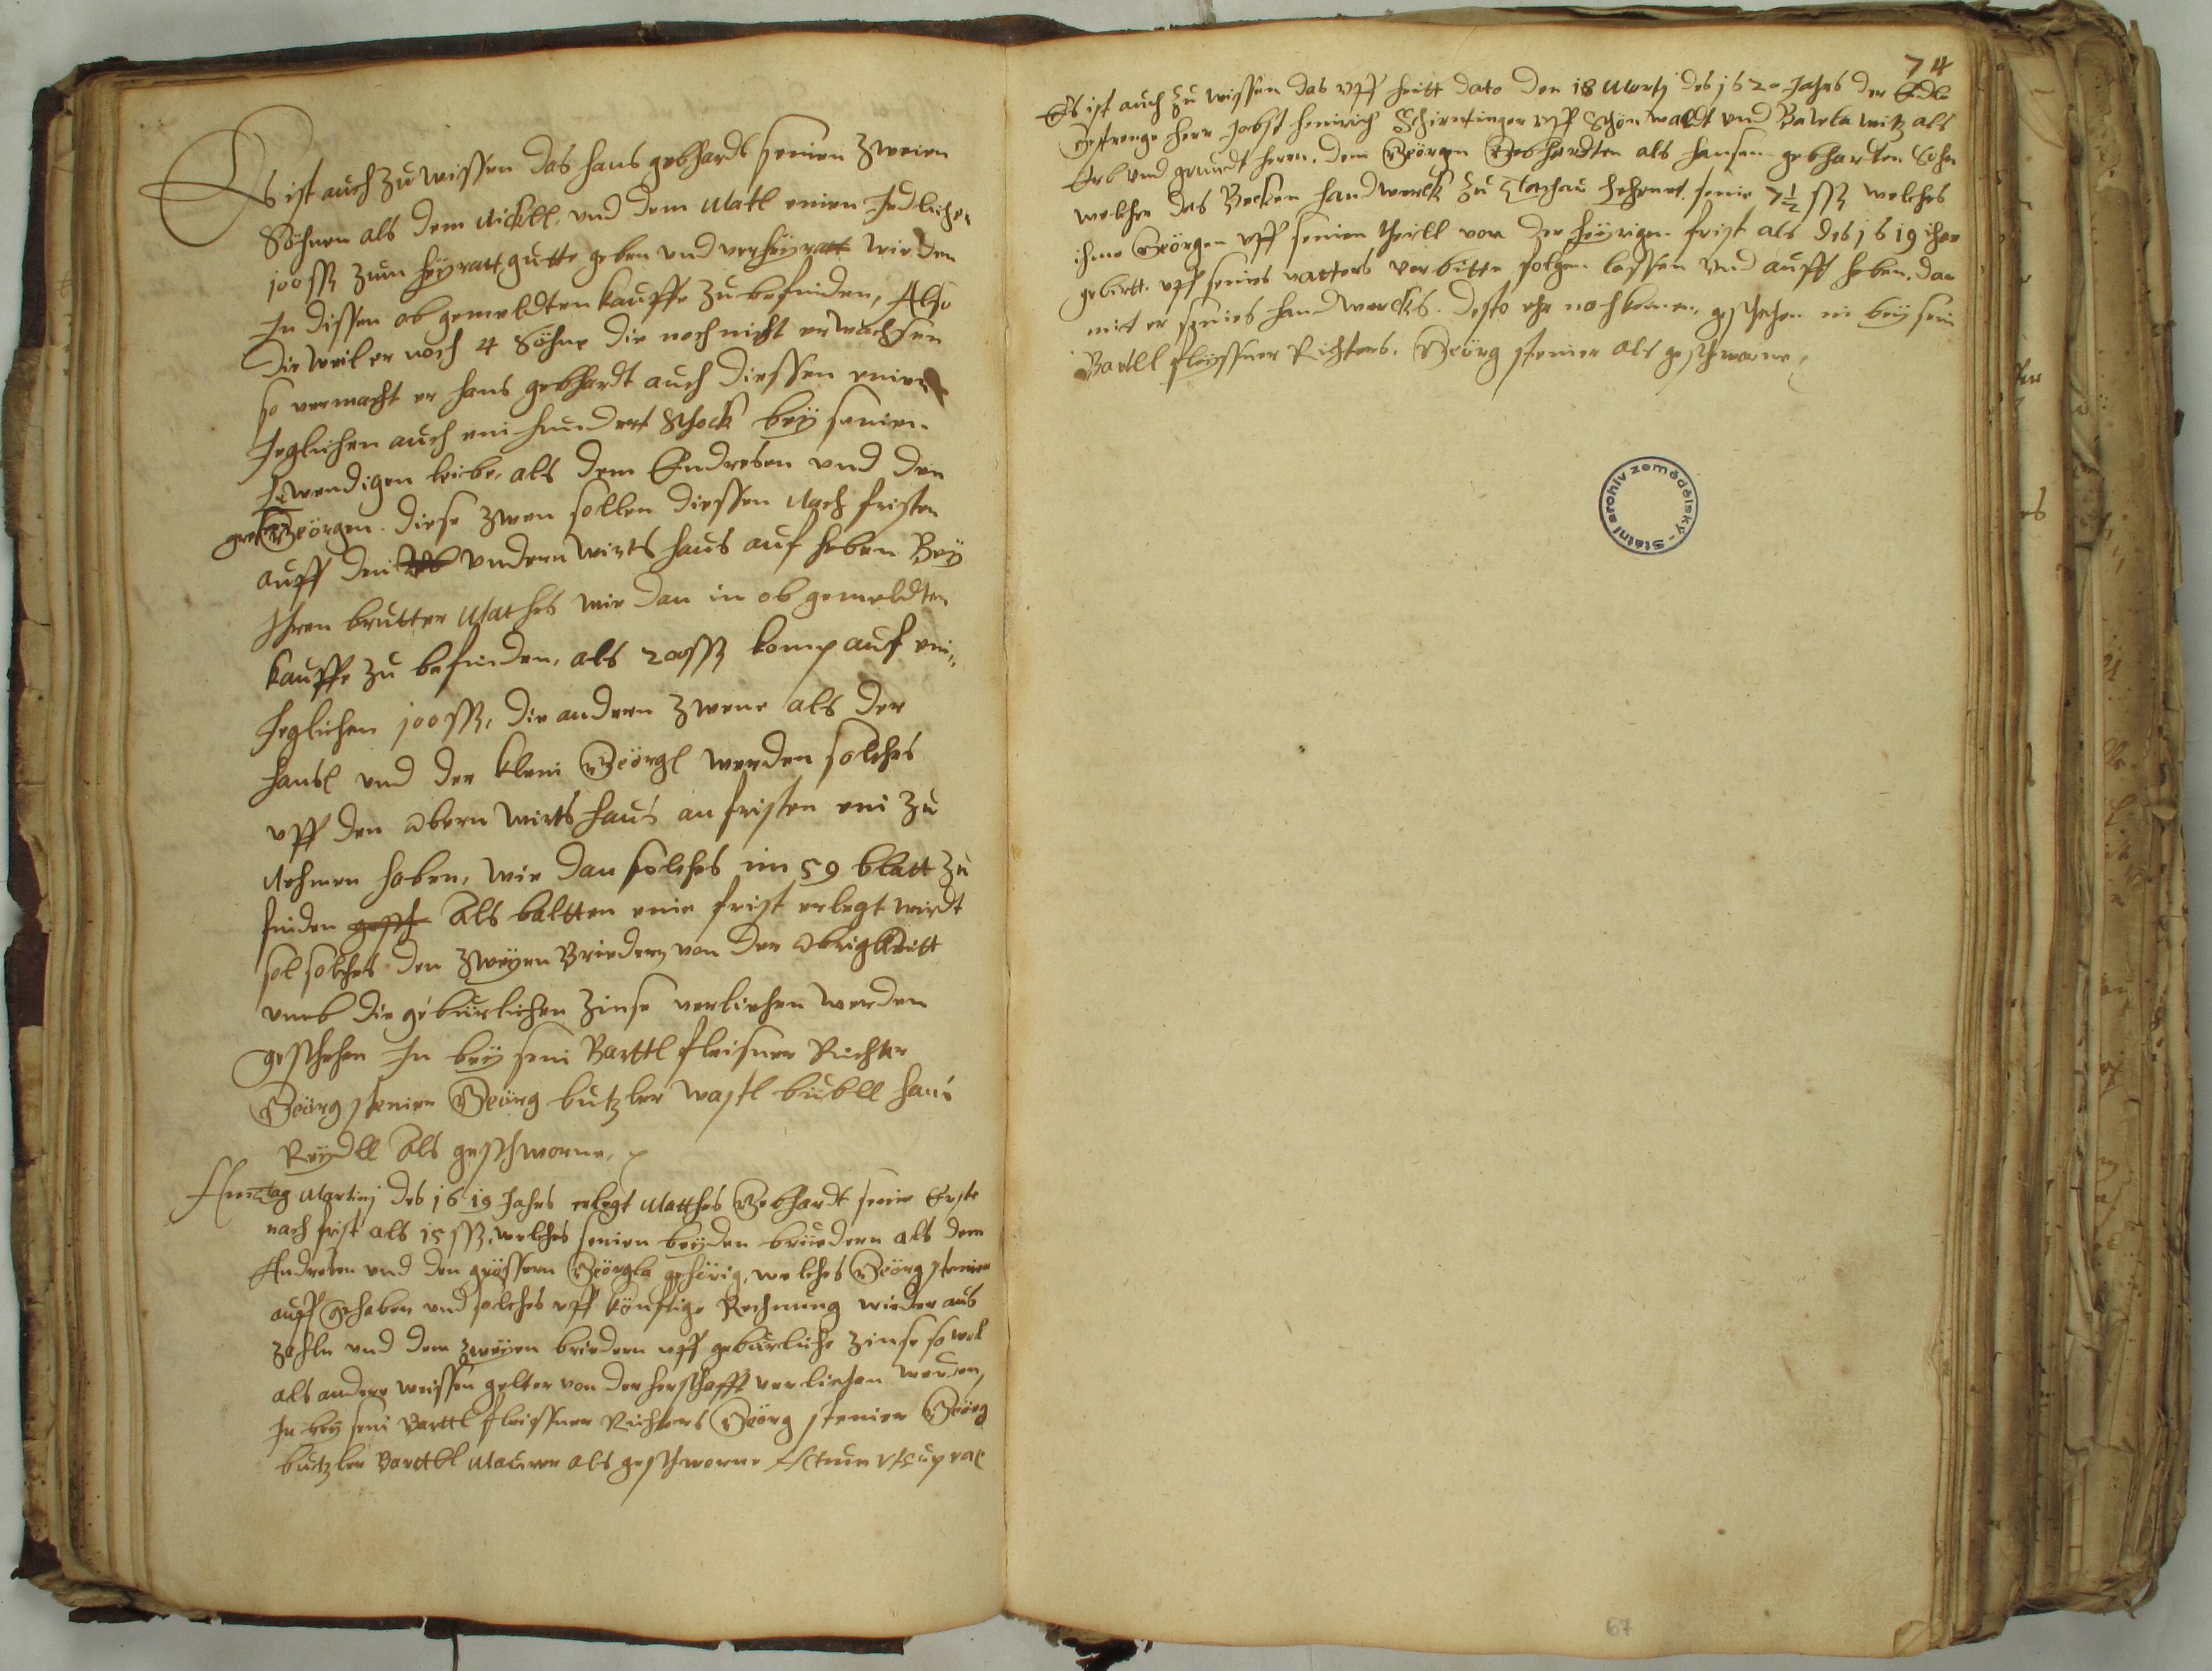 Es ist auch zu wissen das hans gebhardt seinen zweien
Söhnen als dem Nickll. und dem Matl einen Jedlichen
100 ßß zum heyratt gutte geben und verheyratt wie den
In dissen ob gemeldten kauffe zu befinden, Also
die weil er noch 4 Söhne die noch nicht erwachsen
so vermacht er hans gebhardt auch diessen einen
Jeglichen auch ein hundert Schock bey seinen
Lewendigen leibe, als dem Endresen und den
gros Geörgen. diese zwen sollen diessen Nach fristen
auff den undern wirts haus auf heben Bey
Ihren brutter Mathes wie dan in ob gemeldten
kauffe zu befinden, als 200 ßß komp auf ein
Jeglichen 100 ßß, die andern zwene als der
hansl und der klein Geörgl werden solches
uff den obern wirts haus an fristen ein zu
Nehmen haben, wie dan solches im 59 blatt zu
finden gesch als baltten eine frist erlegt wirdt
sol solches den zweyen Briedern von der obrigkeitt
umb die gebürlichen zinse verliehen werden
geschehen In bey sein Barttl fleisner Richter
Geörg steiner Geörg butzler wastl bübll hans
Reydll als geschworne,
Am tag Martinj des 1619 Jahrs erlegt Matthes Gebhardt seine Erste
nach frist als 15 ßß, welches seinen beyden brüedern als dem
Andresen und den grössern Geörgla gehörig, welches Geörg steiner
auff gehaben und solches uff könftige Rechnung wieder aus
zahln und dem zweyen briedern uff gebürliche zinse so wol
als andere weissen gelter von der herschafft verliehen werden,
In bey sein Barttl fleissner Richters Geörg steiner Geörg
butzler Barttll Maurer als geschworne Actum ut supra
74
Es ist auch zu wissen das uff heütt dato den 18 Martj des 1620 Jahrs der Edle
Gestrenge herr Jobst heinrich Schirntinger uff Schönwaldt und als
Erb und grundt herrn. dem Geörgen Gebhardten als hansen gebhardten Sohn
welcher das Becken handwerck zu Tachau Lehrnet. seine 7½ ßß welches
ihme Geörgen uff seinen theill von der heyrigen frist als des 1619 ihar
gebürtt. uff seines vatters vorbitte folgen lassen und auff heben, da
mit er seines handwercks. desto ehr nachkomen, geschehen in bey sein
Barttll fleissner Richters. Geörg steiner als geschworne,
Státní archiv zemědělský
67